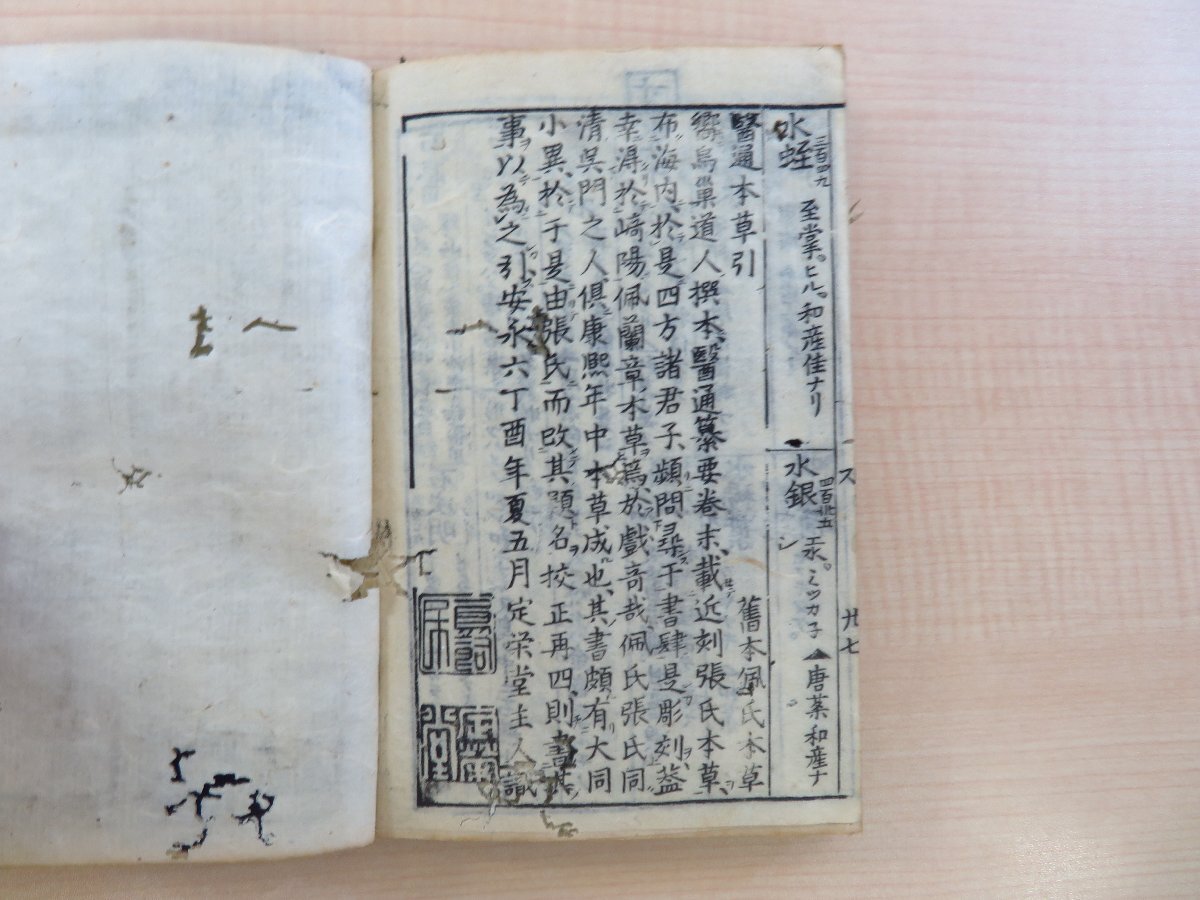 水蛭 三百四九 至掌。ヒル。和産佳ナリ
水銀 四百廿五 汞。ミツカ子▲唐薬和産ナシ
ス 廿七
醫通本草引 舊本佩氏本草
嚮烏巢道人撰本醫通纂要卷末載近刻張氏本草
布海内於是四方諸君子頻問尋于書肆是彫刻益
幸得於崎陽佩蘭章本草焉於戲奇哉佩氏張氏同
清吳門之人倶康熙年中本草成也其書頗有大同
小異於于是由張氏而改其題名挍正再四則書其
事以為之引安永六丁酉年夏五月定栄堂主人識